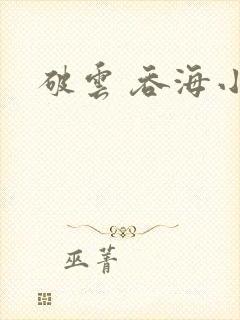 破雲 吞海小
巫菁